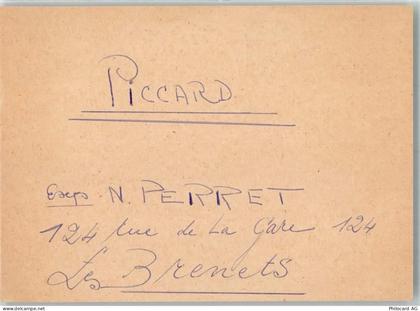 PICCARD
Exp. N. PERRET
124 rue de La Gare 124
Les Brenets
www.delcampe.net
Philocard AG